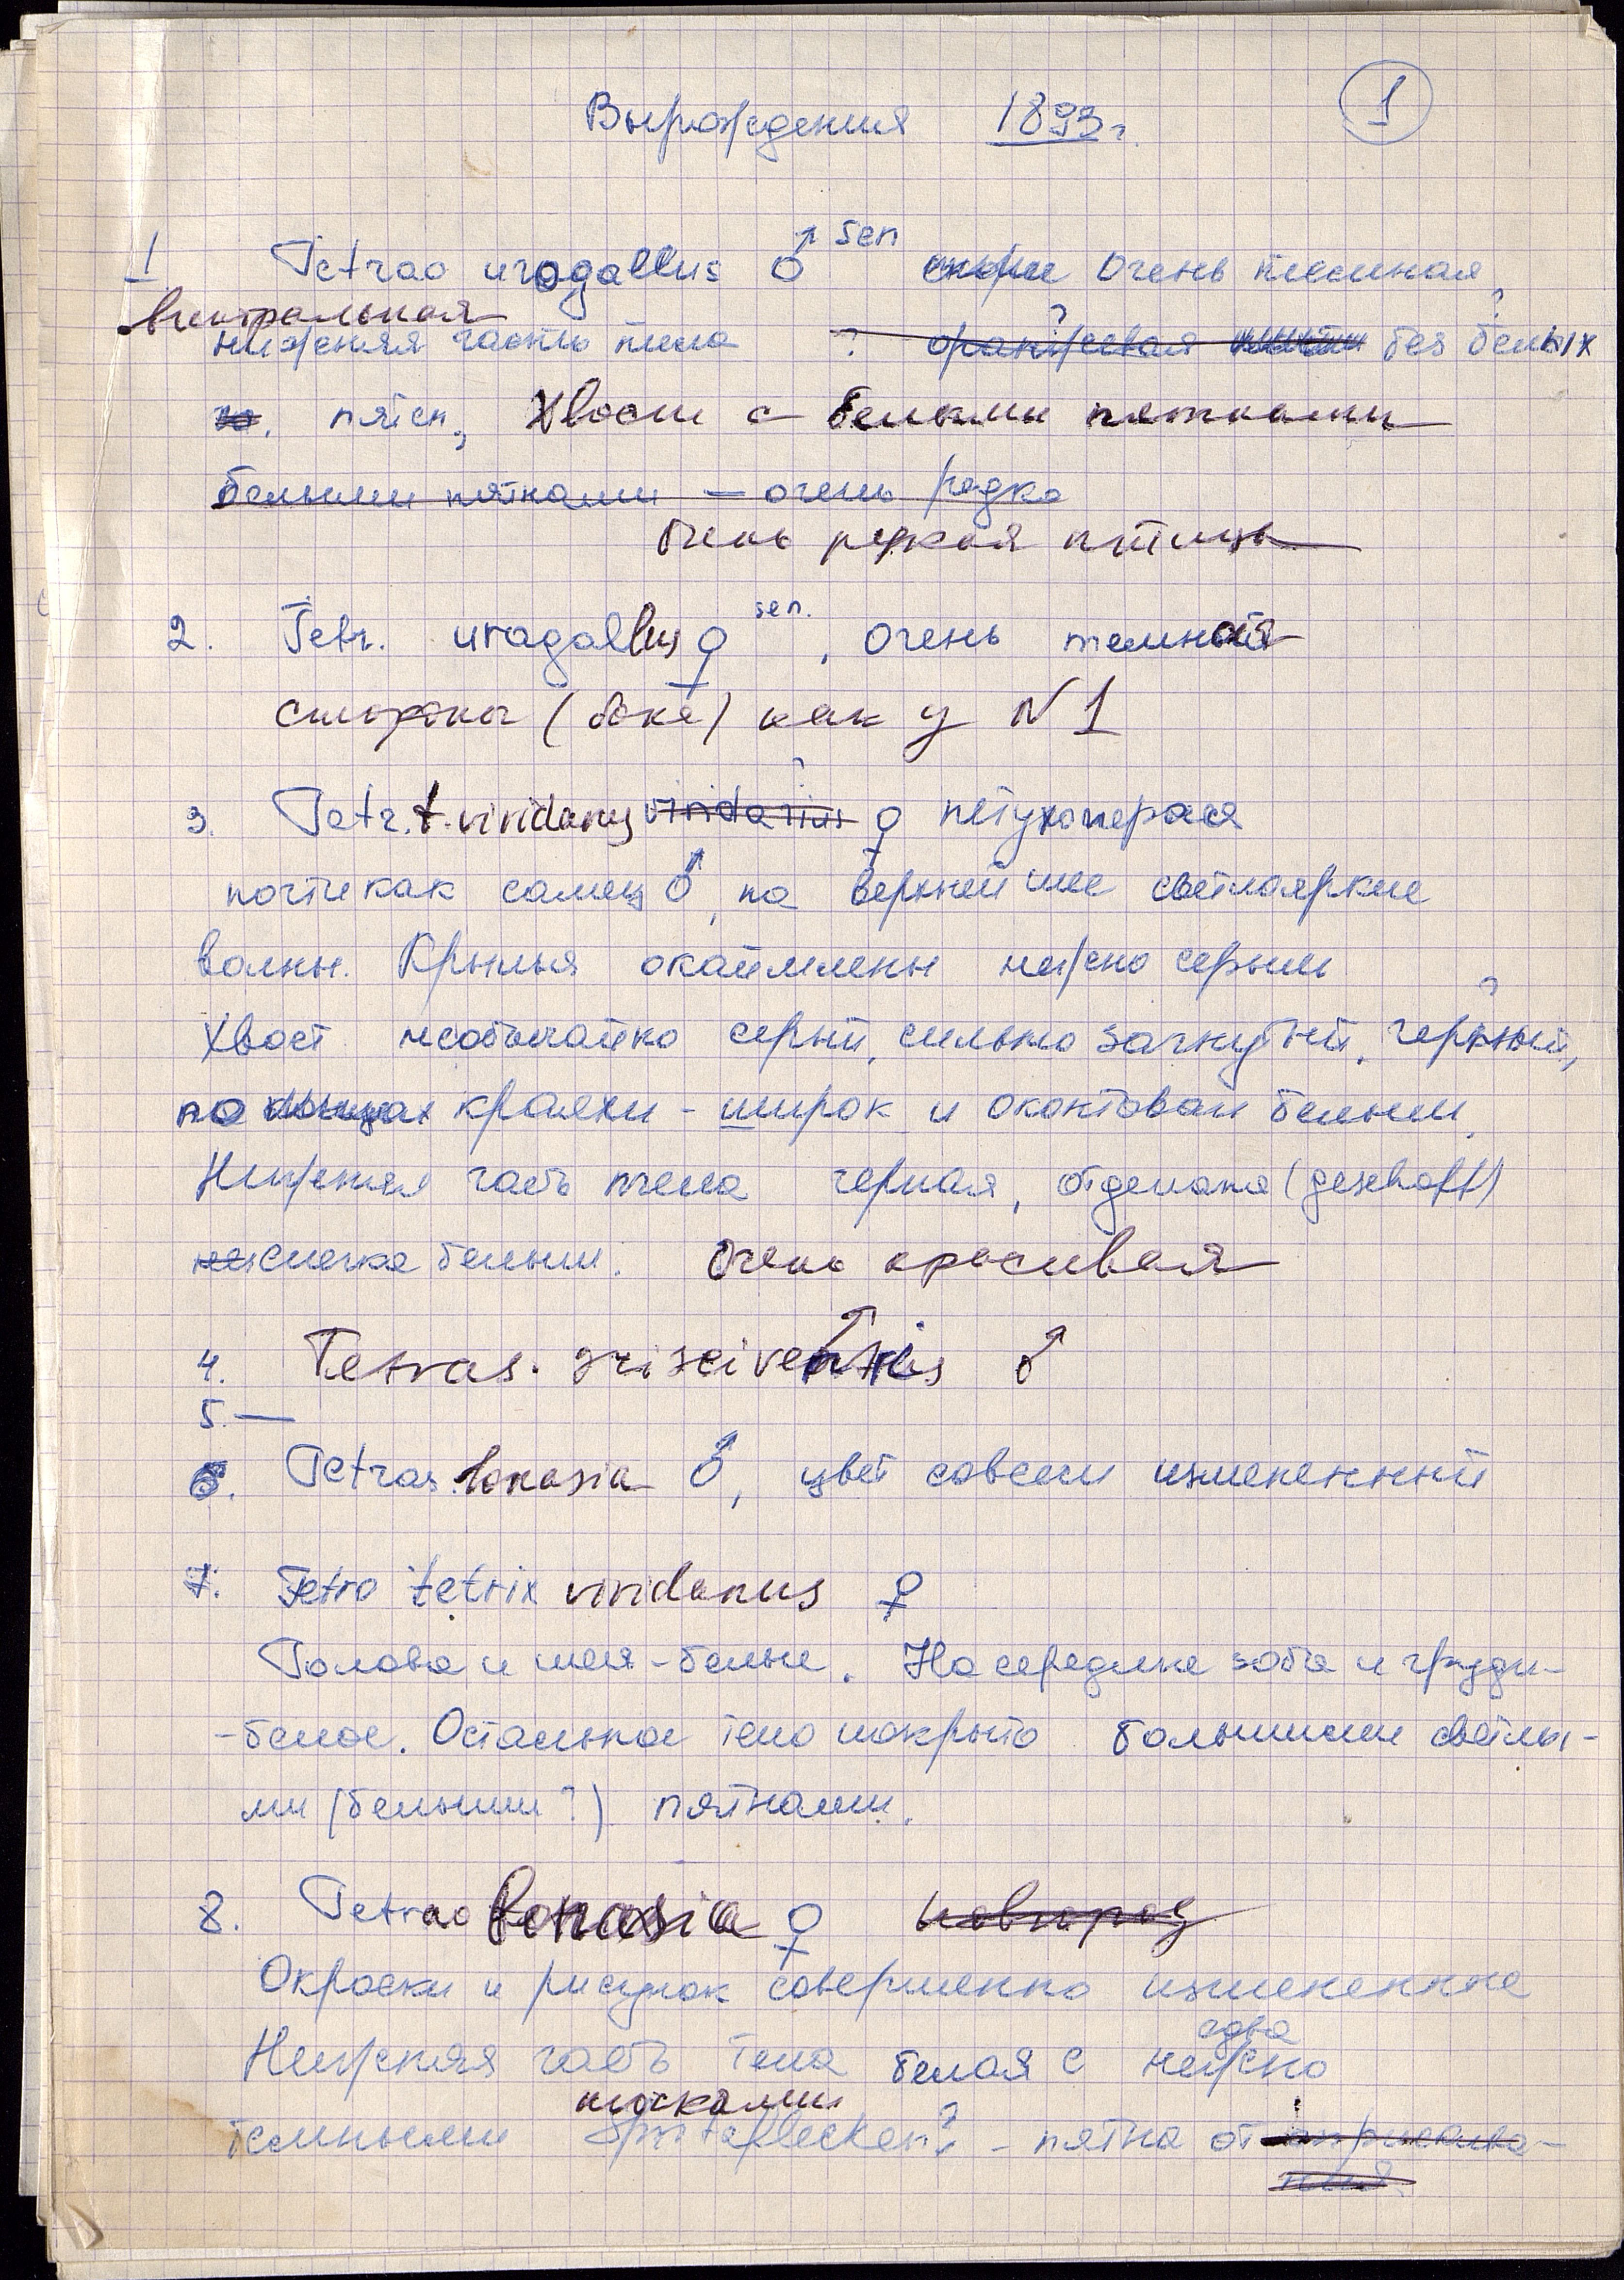 Вырождения 1893 г. 1
1 Tetrao urogallus ♂ sen очень темная,
вентральная
нижняя часть тела ? оранжевая без белых
пятен, Хвост с белыми пятнами
белыми пятнами — очень редко
Очень редкая птица
2. Tetr. urogallus ♀ sen. , очень темная
стороны (бока) как у N 1
3. Tetr. t. viridanus viridanus ♀ петухоперая
почти как самец ♂, на верхней шее светлояркие
волны. Крылья окаймлены нежно серым
Хвост необычайно серый, сильно загнутый, черный,
по концах краях - широк и окантован белым.
Нижняя часть тела черная, отделана (geschaft)
слегка белым. Очень красивая
4. Tetras. griseiventris ♂
5. —
6. Tetras. bonasia ♂, цвет совсем измененный
7. Tetro tetrix viridanus ♀
Голова и шея - белые. На середине зоба и груди-
- белое. Остальное тело покрыто большими светлы-
ми (белыми?) пятнами.
8. Tetrao bonasia ♀
Окраски и рисунок совершенно измененные
едва
Нижняя часть тела белая с нежно
темными Spritzflecken? - пятна от